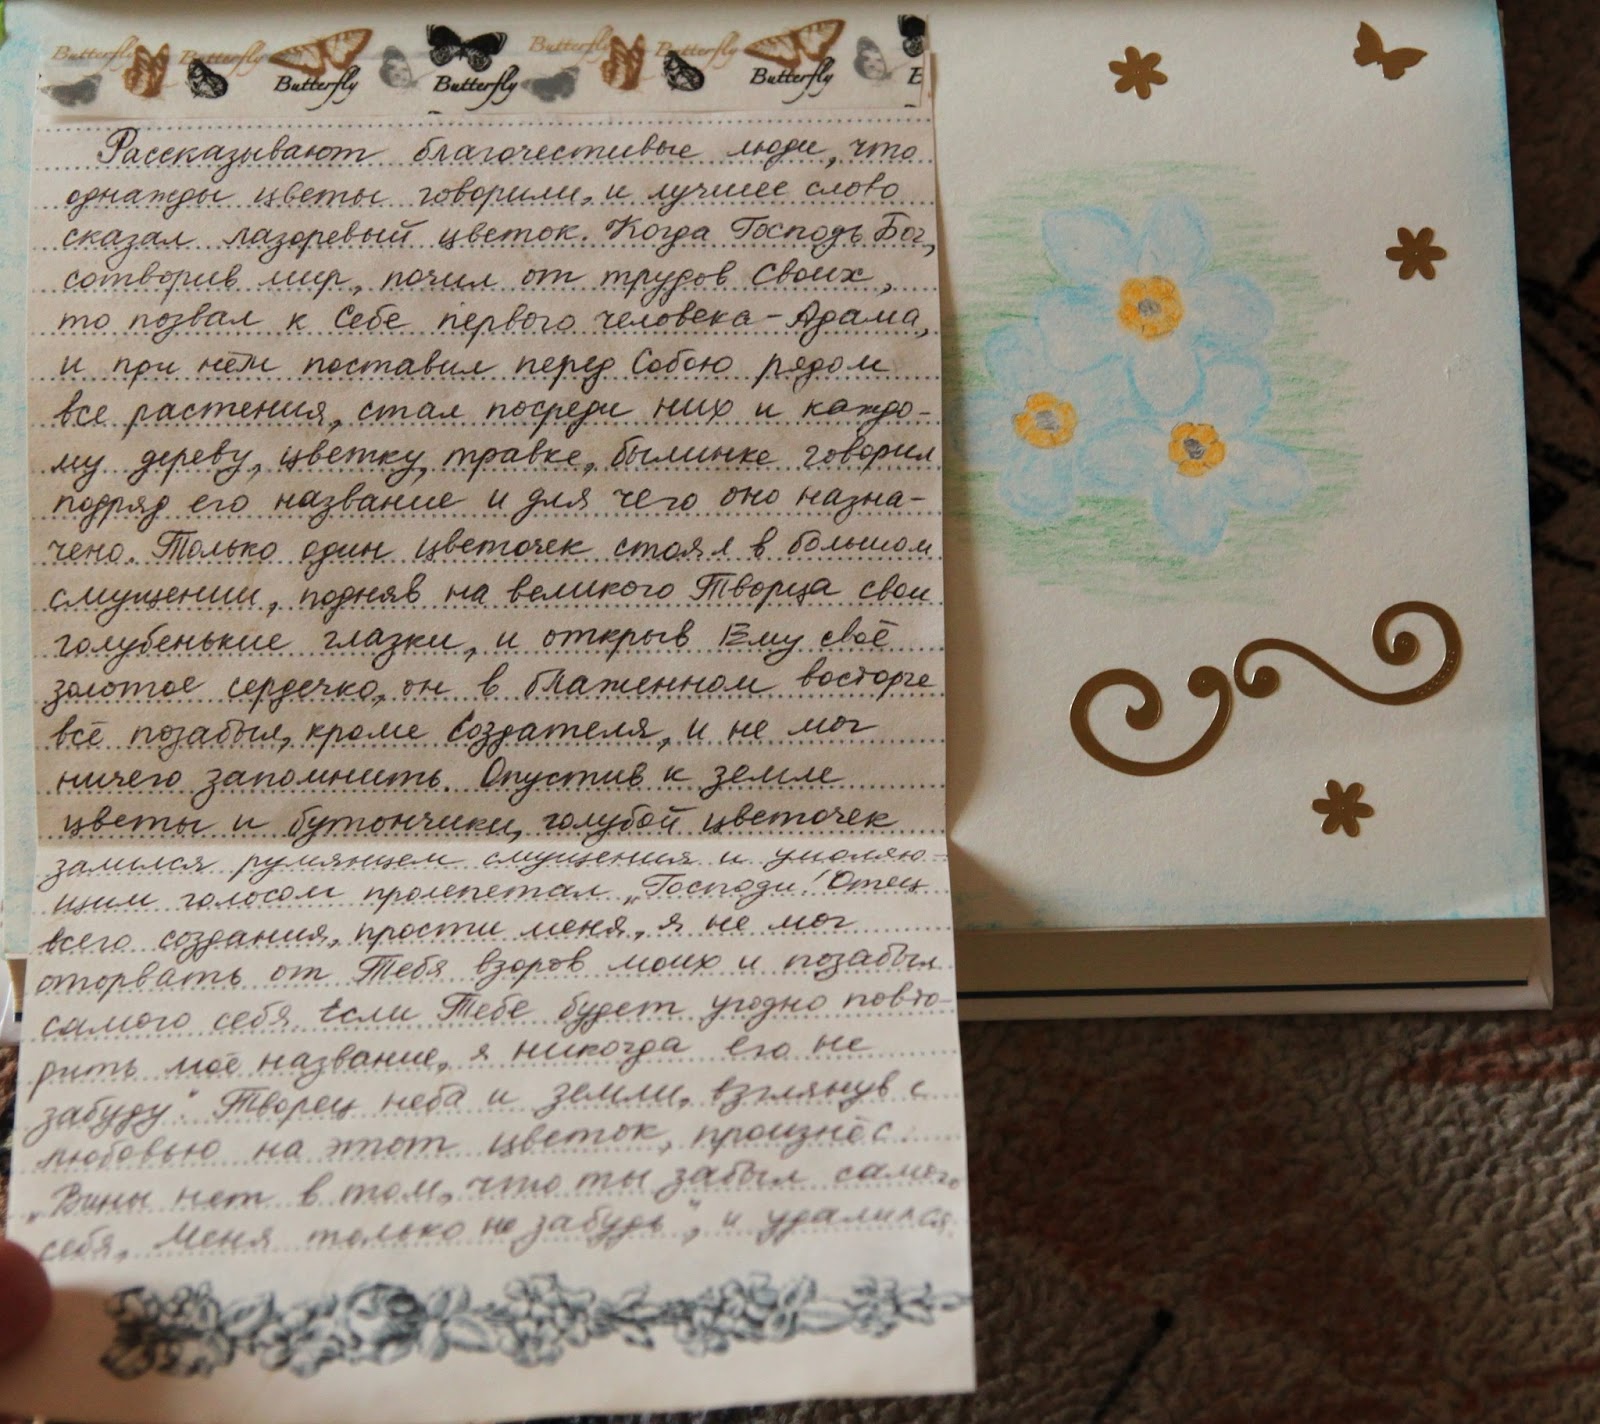 Butterfly Butterfly Butterfly Butterfly Butterfly Butterfly Butterfly
Рассказывают благочестивые люди, что
однажды цветы говорили, и лучшее слово
сказал лазоревый цветок. Когда Господь Бог,
сотворив мир, почил от трудов Своих,
то позвал к Себе первого человека - Адама,
и при нём поставил перед Собою рядом
все растения, стал посреди них и каждо-
му дереву, цветку, травке, былинке говорил
подряд его название и для чего оно назна-
чено. Только один цветочек стоял в большом
смущении, подняв на великого Творца свои
голубенькие глазки, и открыв Ему своё
золотое сердечко, он в блаженном восторге
всё позабыл, кроме Создателя, и не мог
ничего запомнить. Опустив к земле
цветы и бутончики, голубой цветочек
залился румянцем смущения и умоляю-
щим голосом пролепетал „Господи! Отец
всего создания, прости меня, я не мог
оторвать от Тебя взоров моих и позабыл
самого себя. Если Тебе будет угодно повто-
рить моё название, я никогда его не
забуду“. Творец неба и земли, взглянув с
любовью на этот цветок, произнёс:
„Вины нет в том, что ты забыл самого
себя, Меня только не забудь“, и удалился.